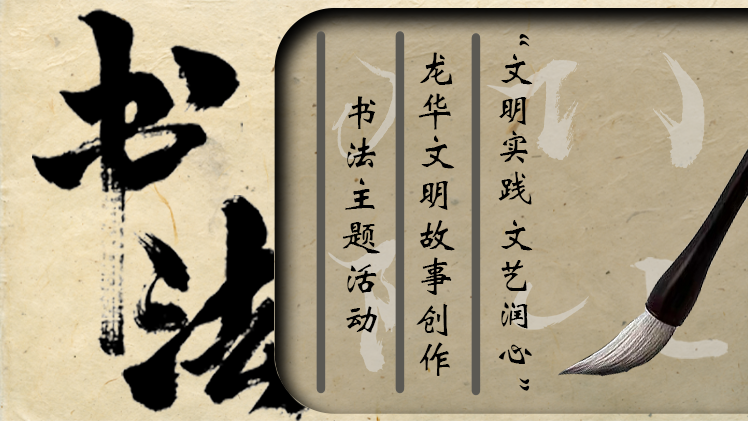 书法
“文明实践 文艺润心”
龙华文明故事创作
书法主题活动